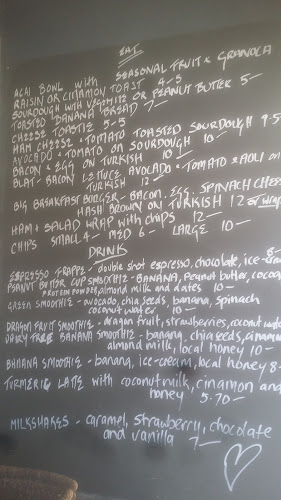 EAT
ACAI BOWL with SEASONAL FRUIT & GRANOLA
RAISIN OR CINAMON TOAST 4-5
SOURDOUGH WITH VEGEMITE OR PEANUT BUTTER 5-
TOASTED BANANA BREAD 7-
CHEESE TOASTIE 5-5
HAM CHEESE & TOMATO TOASTED SOURDOUGH 9-5
AVOCADO & TOMATO ON SOURDOUGH 10-
BACON & EGG ON TURKISH 10-
BLAT - BACON LETTUCE AVOCADO & TOMATO & AOLI on
TURKISH 12-
BIG BREAKFAST BURGER - BACON, EGG, SPINACH CHEES
HASH BROWN ON TURKISH 12 or wrap
HAM & SALAD WRAP with chips 12-
CHIPS SMALL 4- MED 6- LARGE 10-
DRINK
ESPRESSO FRAPPE - double shot espresso, chocolate, ice-crea 8-
PEANUT BUTTER CUP SMOOTHIE - BANANA, Peanut butter, cocoa
PROTEIN POWDER, almond milk and dates 10-
GREEN SMOOTHIE - avocado, chia seeds, banana, spinach
coconut water 10-
DRAGON FRUIT SMOOTHIE - dragon fruit, strawberries, coconut wate
DAIRY FREE BANANA SMOOTHIE - banana, chia seeds, cinamon
almond milk, local honey 10-
BANANA SMOOTHIE - banana, ice-cream, local honey 8-
TURMERIC LATTE with coconut milk, cinamon and
honey 5-70-
MILKSHAKES - caramel, strawberry, chocolate
and vanilla 7-